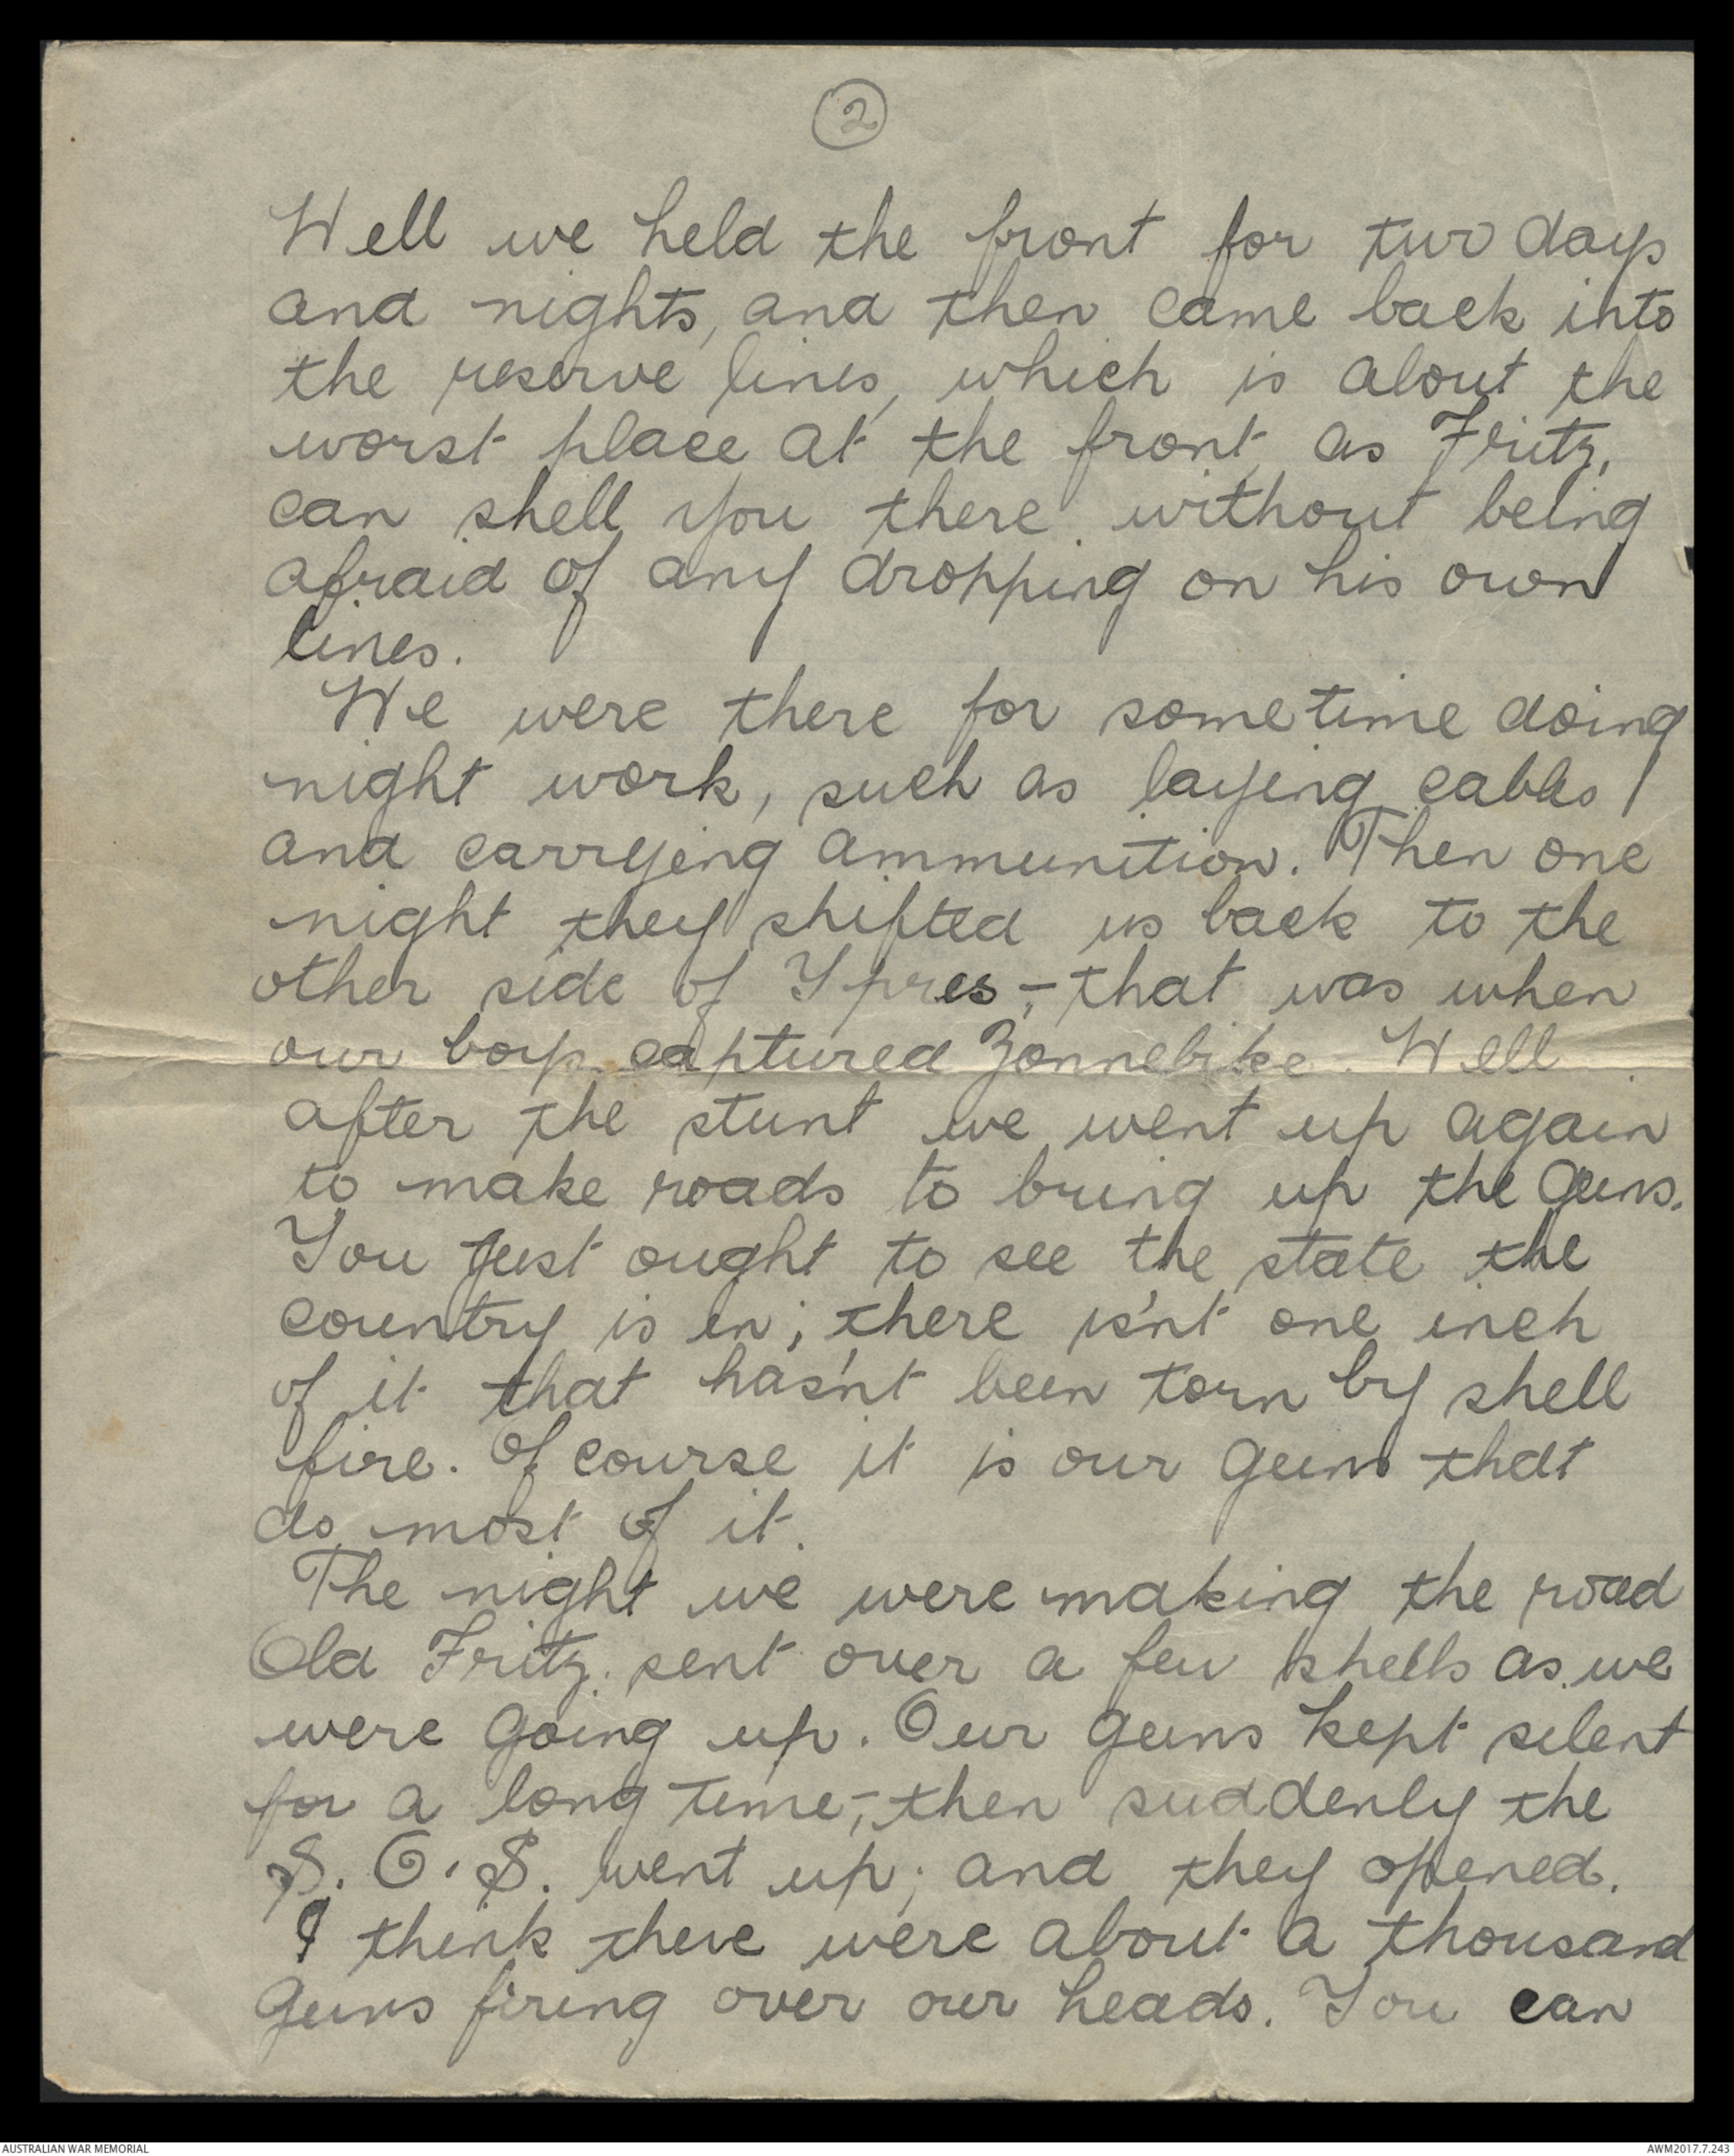 2
Well we held the front for two days
and nights, and then came back into
the reserve lines, which is about the
worst place at the front, as Fritz,
can shell you there without being
afraid of any dropping on his own
lines.
We were there for sometime doing
night work, such as laying cables
and carrying ammunition. Then one
night they shifted us back to the
other side of Ypres,- that was when
our boys captured Zonnebike. Well
after the stunt we went up again
to make roads to bring up the Guns.
You just ought to see the state the
country is in; there is'nt one inch
of it that has'nt been torn by shell
fire. Of course it is our Guns that
do most of it.
The night we were making the road
Old Fritz. sent over a few shells as we
were going up. Our guns kept silent
for a long time,- then suddenly the
S.O.S. went up; and they opened.
I think there were about a thousand
Guns firing over our heads. You can
AUSTRALIAN WAR MEMORIAL
AWM2017.7.243